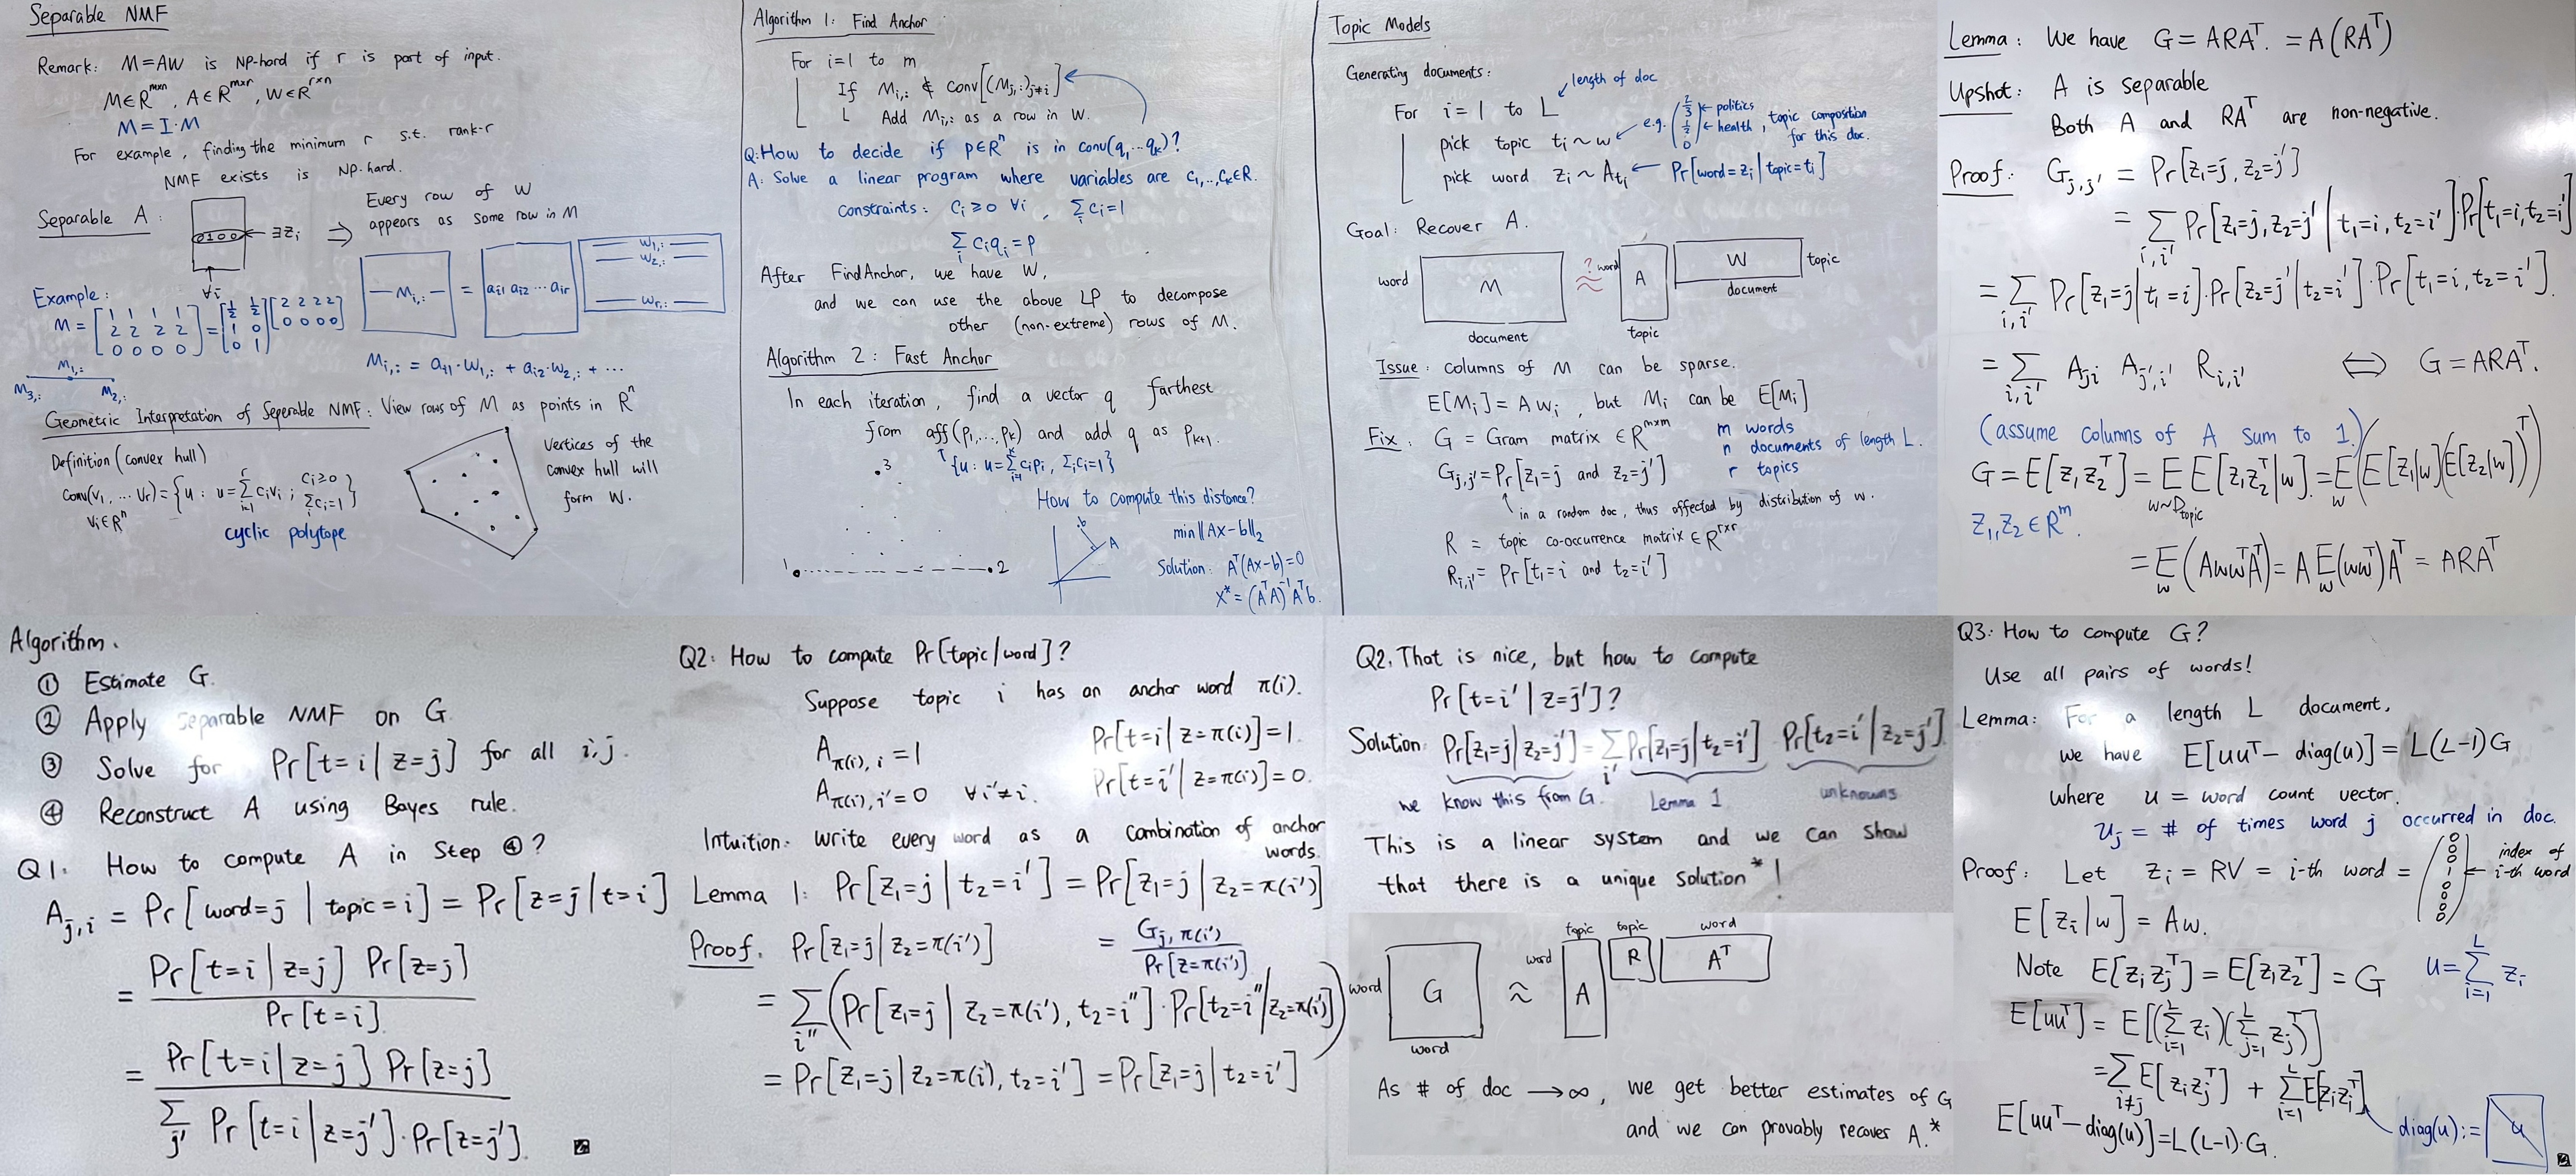 Separable NMF
Remark: M=AW is NP-hard if r is part of input.
M∈R^{m×n}, A∈R^{m×r}, W∈R^{r×n}
M=I·M
For example, finding the minimum r s.t. rank-r
NMF exists is NP-hard.
Separable A:
0100 ← ∃z_i ⇒
∀i
Every row of W
appears as some row in M
Example:
M = [1 1 1 1; 2 2 2 2; 0 0 0 0] = [1/2 1/2; 1 0; 0 1] [2 2 2 2; 0 0 0 0]
M_{i,:} = a_{i1} a_{i2} ··· a_{ir}
W_{1,:}
W_{2,:}
W_{r,:}
M_{i,:} = a_{i1}·W_{1,:} + a_{i2}·W_{2,:} + ···
M_{1,:}
M_{3,:} M_{2,:}
Geometric Interpretation of Seperable NMF: View rows of M as points in R^n
Definition (convex hull)
conv(v_1, ... v_r) = {u : u = Σ_{i=1}^r c_i v_i ; c_i≥0 Σ_i c_i=1}
v_i∈R^n
cyclic polytope
Vertices of the
convex hull will
form W.
Algorithm 1: Find Anchor
For i=1 to m
If M_{i,:} ∉ conv[(M_{j,:})_{j≠i}]
Add M_{i,:} as a row in W.
Q: How to decide if p∈R^n is in conv(q_1 ... q_k)?
A: Solve a linear program where variables are c_1,..,c_k∈R.
constraints: c_i ≥ 0 ∀i, Σ_i c_i=1
Σ_i c_i q_i = p
After FindAnchor, we have W,
and we can use the above LP to decompose
other (non-extreme) rows of M.
Algorithm 2: Fast Anchor
In each iteration, find a vector q farthest
from aff(p_1,...,p_k) and add q as p_{k+1}.
{u: u=Σ_{i=1}^k c_i p_i, Σ_i c_i=1}
3
1 2
How to compute this distance?
b
A
min||Ax-b||_2
Solution: A^T(Ax-b)=0
x* = (A^T A)^{-1} A^T b.
Topic Models
Generating documents:
length of doc
For i = 1 to L
pick topic t_i ~ w ← e.g. ← politics ← health, topic composition
for this doc.
pick word z_i ~ A_{t_i} ← Pr[word=z_i | topic=t_i]
Goal: Recover A.
word M ≈ ? word A W topic
document
document topic
Issue: columns of M can be sparse.
E[M_i] = A w_i, but M_i can be E[M_i]
Fix: G = Gram matrix ∈R^{m×m}
m words
n documents of length L.
r topics
G_{j,j'} = Pr[z_1=j and z_2=j']
in a random doc, thus affected by distribution of w.
R = topic co-occurrence matrix ∈R^{r×r}
R_{i,i'} = Pr[t_1=i and t_2=i']
Lemma: We have G=ARA^T. = A(RA^T)
Upshot: A is separable
Both A and RA^T are non-negative.
Proof: G_{j,j'} = Pr[z_1=j, z_2=j']
= Σ_{i,i'} Pr[z_1=j, z_2=j' | t_1=i, t_2=i'] Pr[t_1=i, t_2=i']
= Σ_{i,i'} Pr[z_1=j | t_1=i]·Pr[z_2=j' | t_2=i']·Pr[t_1=i, t_2=i'].
= Σ_{i,i'} A_{ji} A_{j',i'} R_{i,i'} ⟺ G=ARA^T.
(assume columns of A sum to 1.)
G = E[z_1 z_2^T] = E_{w~D_topic} E[z_1 z_2^T | w] = E_w (E[z_1|w](E[z_2|w])^T)
z_1, z_2 ∈ R^m.
= E_w (Aww^T A^T) = A E_w(ww^T) A^T = ARA^T
Algorithm.
① Estimate G.
② Apply separable NMF on G.
③ Solve for Pr[t=i | z=j] for all i,j.
④ Reconstruct A using Bayes rule.
Q1. How to compute A in Step ④?
A_{j,i} = Pr[word=j | topic=i] = Pr[z=j | t=i]
= Pr[t=i | z=j] Pr[z=j] / Pr[t=i]
= Pr[t=i | z=j] Pr[z=j] / Σ_{j'} Pr[t=i | z=j']·Pr[z=j'].
Q2: How to compute Pr[topic/word]?
Suppose topic i has an anchor word π(i).
A_{π(i),i} = 1 Pr[t=i | z=π(i)]=1.
A_{π(i),i'} = 0 ∀i'≠i. Pr[t=i' | z=π(i)]=0.
Intuition: write every word as a combination of anchor
words.
Lemma 1: Pr[z_1=j | t_2=i'] = Pr[z_1=j | z_2=π(i')]
Proof. Pr[z_1=j | z_2=π(i')] = G_{j,π(i')} / Pr[z=π(i')]
= Σ_{i''} (Pr[z_1=j | z_2=π(i'), t_2=i'']·Pr[t_2=i'' | z_2=π(i')])
= Pr[z_1=j | z_2=π(i'), t_2=i'] = Pr[z_1=j | t_2=i']
Q2. That is nice, but how to compute
Pr[t=i' | z=j']?
Solution: Pr[z_1=j | z_2=j'] = Σ_{i'} Pr[z_1=j | t_2=i'] Pr[t_2=i' | z_2=j'].
we know this from G. Lemma 1 unknowns
This is a linear system and we can show
that there is a unique solution*!
topic topic word
word G ≈ word A R A^T
word
As # of doc → ∞, we get better estimates of G
and we can provably recover A.*
Q3: How to compute G?
Use all pairs of words!
Lemma: For a length L document,
we have E[uu^T - diag(u)] = L(L-1)G
where u = word count vector.
u_j = # of times word j occurred in doc.
Proof: Let z_i = RV = i-th word = (0 0 0 1 0 0 0 0) ← index of
i-th word
E[z_i | w] = Aw.
Note E[z_i z_j^T] = E[z_1 z_2^T] = G u = Σ_{i=1}^L z_i
E[uu^T] = E[(Σ_{i=1}^L z_i)(Σ_{j=1}^L z_j^T)]
= Σ_{i≠j} E[z_i z_j^T] + Σ_{i=1}^L E[z_i z_i^T]
E[uu^T - diag(u)] = L(L-1)·G. diag(u) := u